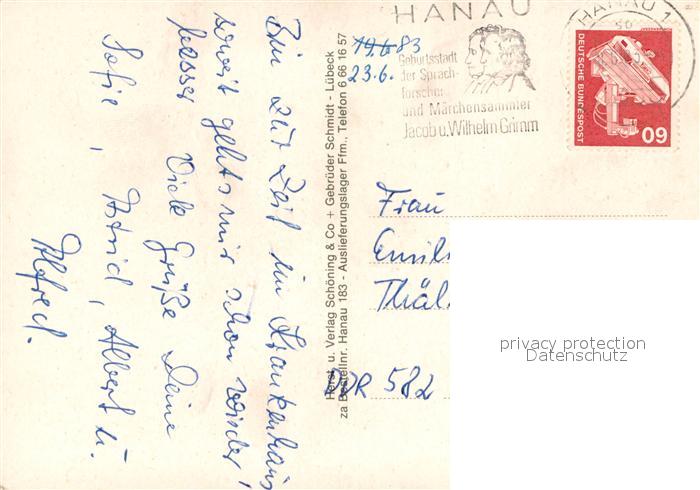 HANAU
Geburtsstadt
der Sprach-
forscher
und Märchensammler
Jacob u. Wilhelm Grimm
HANAU 1
DEUTSCHE BUNDESPOST
60
19.6.83
23.6.
Bin zur Zeit im Krankenhaus
soweit gehts mir schon wieder
besser Viele Grüße Deine
Sofie, Astrid, Albert u.
Alfred.
Herst. u. Verlag Schöning & Co + Gebrüder Schmidt - Lübeck
za Bestellnr. Hanau 183 - Auslieferungslager Ffm., Telefon 6 66 16 57
Frau
Emili
Thäl
DDR 582
privacy protection
Datenschutz